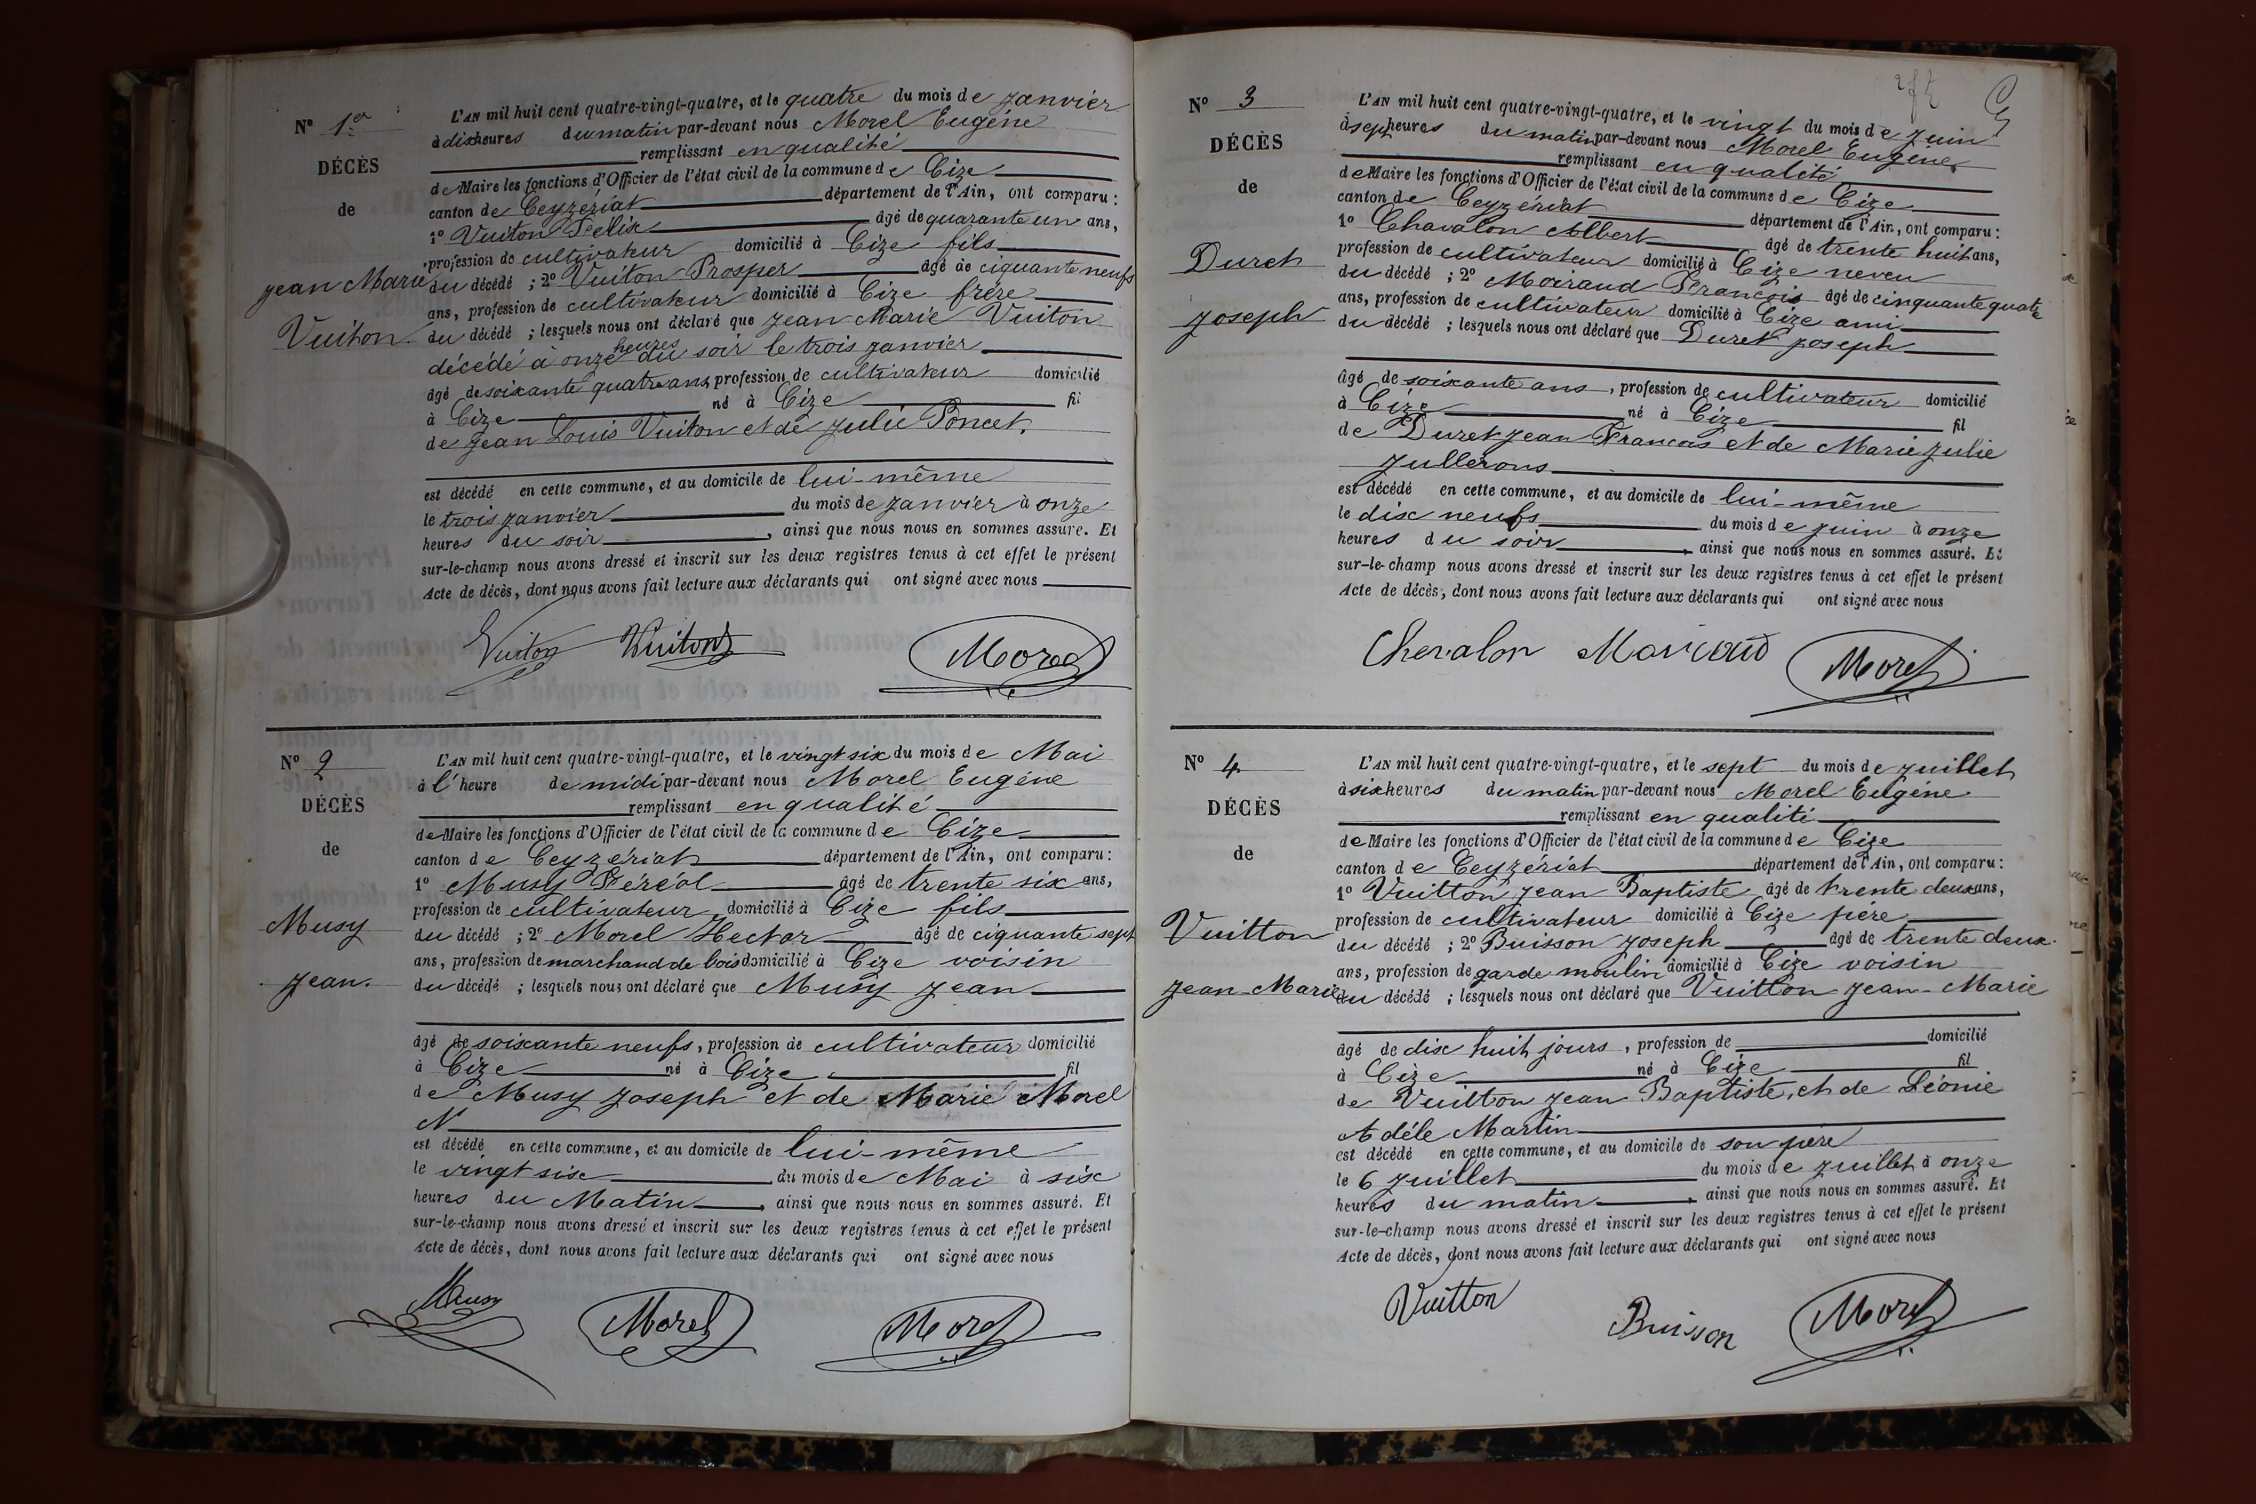 Nº 1er
DÉCÈS
de
Jean Marie
Vuiton
L'AN mil huit cent quatre-vingt-quatre, et le quatre du mois de Janvier
à dix heures du matin par-devant nous Morel Eugène
remplissant en qualité
de Maire les fonctions d'Officier de l'état civil de la commune de Cize
canton de Ceyzériat département de l'Ain, ont comparu :
1º Vuiton Félix âgé de quarante un ans,
profession de cultivateur domicilié à Cize fils
du décédé ; 2º Vuiton Prosper âgé de ciquante neufs
ans, profession de cultivateur domicilié à Cize frère
du décédé ; lesquels nous ont déclaré que Jean Marie Vuiton
décédé à onze heures du soir le trois Janvier
âgé de soixante quatre ans, profession de cultivateur domicilié
à Cize né à Cize fil
de Jean Louis Vuiton et de Julie Poncet.
est décédé en cette commune, et au domicile de lui-même
le trois Janvier du mois de Janvier à onze
heures du soir, ainsi que nous nous en sommes assuré. Et
sur-le-champ nous avons dressé et inscrit sur les deux registres tenus à cet effet le présent
Acte de décès, dont nous avons fait lecture aux déclarants qui ont signé avec nous
Vuiton Vuiton Morel
Nº 2
DÉCÈS
de
Musy
Jean.
L'AN mil huit cent quatre-vingt-quatre, et le vingt six du mois de Mai
à l'heure de midi par-devant nous Morel Eugène
remplissant en qualité
de Maire les fonctions d'Officier de l'état civil de la commune de Cize
canton de Ceyzériat département de l'Ain, ont comparu :
1º Musy Féréol âgé de trente six ans,
profession de cultivateur domicilié à Cize fils
du décédé ; 2º Morel Hector âgé de ciquante sept
ans, profession de marchand de bois domicilié à Cize voisin
du décédé ; lesquels nous ont déclaré que Musy Jean
âgé de soixante neufs, profession de cultivateur domicilié
à Cize né à Cize fil
de Musy Joseph et de Marie Morel
est décédé en cette commune, et au domicile de lui-même
le vingt six du mois de Mai à six
heures du Matin, ainsi que nous nous en sommes assuré. Et
sur-le-champ nous avons dressé et inscrit sur les deux registres tenus à cet effet le présent
Acte de décès, dont nous avons fait lecture aux déclarants qui ont signé avec nous
Musy Morel Morel
Nº 3
DÉCÈS
de
Duret
Joseph
L'AN mil huit cent quatre-vingt-quatre, et le vingt du mois de Juin
à sept heures du matin par-devant nous Morel Eugène
remplissant en qualité
de Maire les fonctions d'Officier de l'état civil de la commune de Cize
canton de Ceyzériat département de l'Ain, ont comparu :
1º Chavalon Albert âgé de trente huit ans,
profession de cultivateur domicilié à Cize neveu
du décédé ; 2º Moiraud François âgé de cinquante quatre
ans, profession de cultivateur domicilié à Cize ami
du décédé ; lesquels nous ont déclaré que Duret Joseph
âgé de soixante ans, profession de cultivateur domicilié
à Cize né à Cize fil
de Duret Jean François et de Marie Julie
Jullerons
est décédé en cette commune, et au domicile de lui-même
le dix neufs du mois de Juin à onze
heures du soir, ainsi que nous nous en sommes assuré. Et
sur-le-champ nous avons dressé et inscrit sur les deux registres tenus à cet effet le présent
Acte de décès, dont nous avons fait lecture aux déclarants qui ont signé avec nous
Chevalon Moiraud Morel
Nº 4
DÉCÈS
de
Vuitton
Jean-Marie
L'AN mil huit cent quatre-vingt-quatre, et le sept du mois de Juillet
à six heures du matin par-devant nous Morel Eugène
remplissant en qualité
de Maire les fonctions d'Officier de l'état civil de la commune de Cize
canton de Ceyzériat département de l'Ain, ont comparu :
1º Vuitton Jean Baptiste âgé de trente deux ans,
profession de cultivateur domicilié à Cize père
du décédé ; 2º Buisson Joseph âgé de trente deux
ans, profession de garde moulin domicilié à Cize voisin
du décédé ; lesquels nous ont déclaré que Vuitton Jean-Marie
âgé de dix huit jours, profession de domicilié
à Cize né à Cize fil
de Vuitton Jean Baptiste, et de Léonie
Adéle Martin
est décédé en cette commune, et au domicile de son père
le 6 Juillet du mois de Juillet à onze
heures du matin, ainsi que nous nous en sommes assuré. Et
sur-le-champ nous avons dressé et inscrit sur les deux registres tenus à cet effet le présent
Acte de décès, dont nous avons fait lecture aux déclarants qui ont signé avec nous
Vuitton Buisson Morel